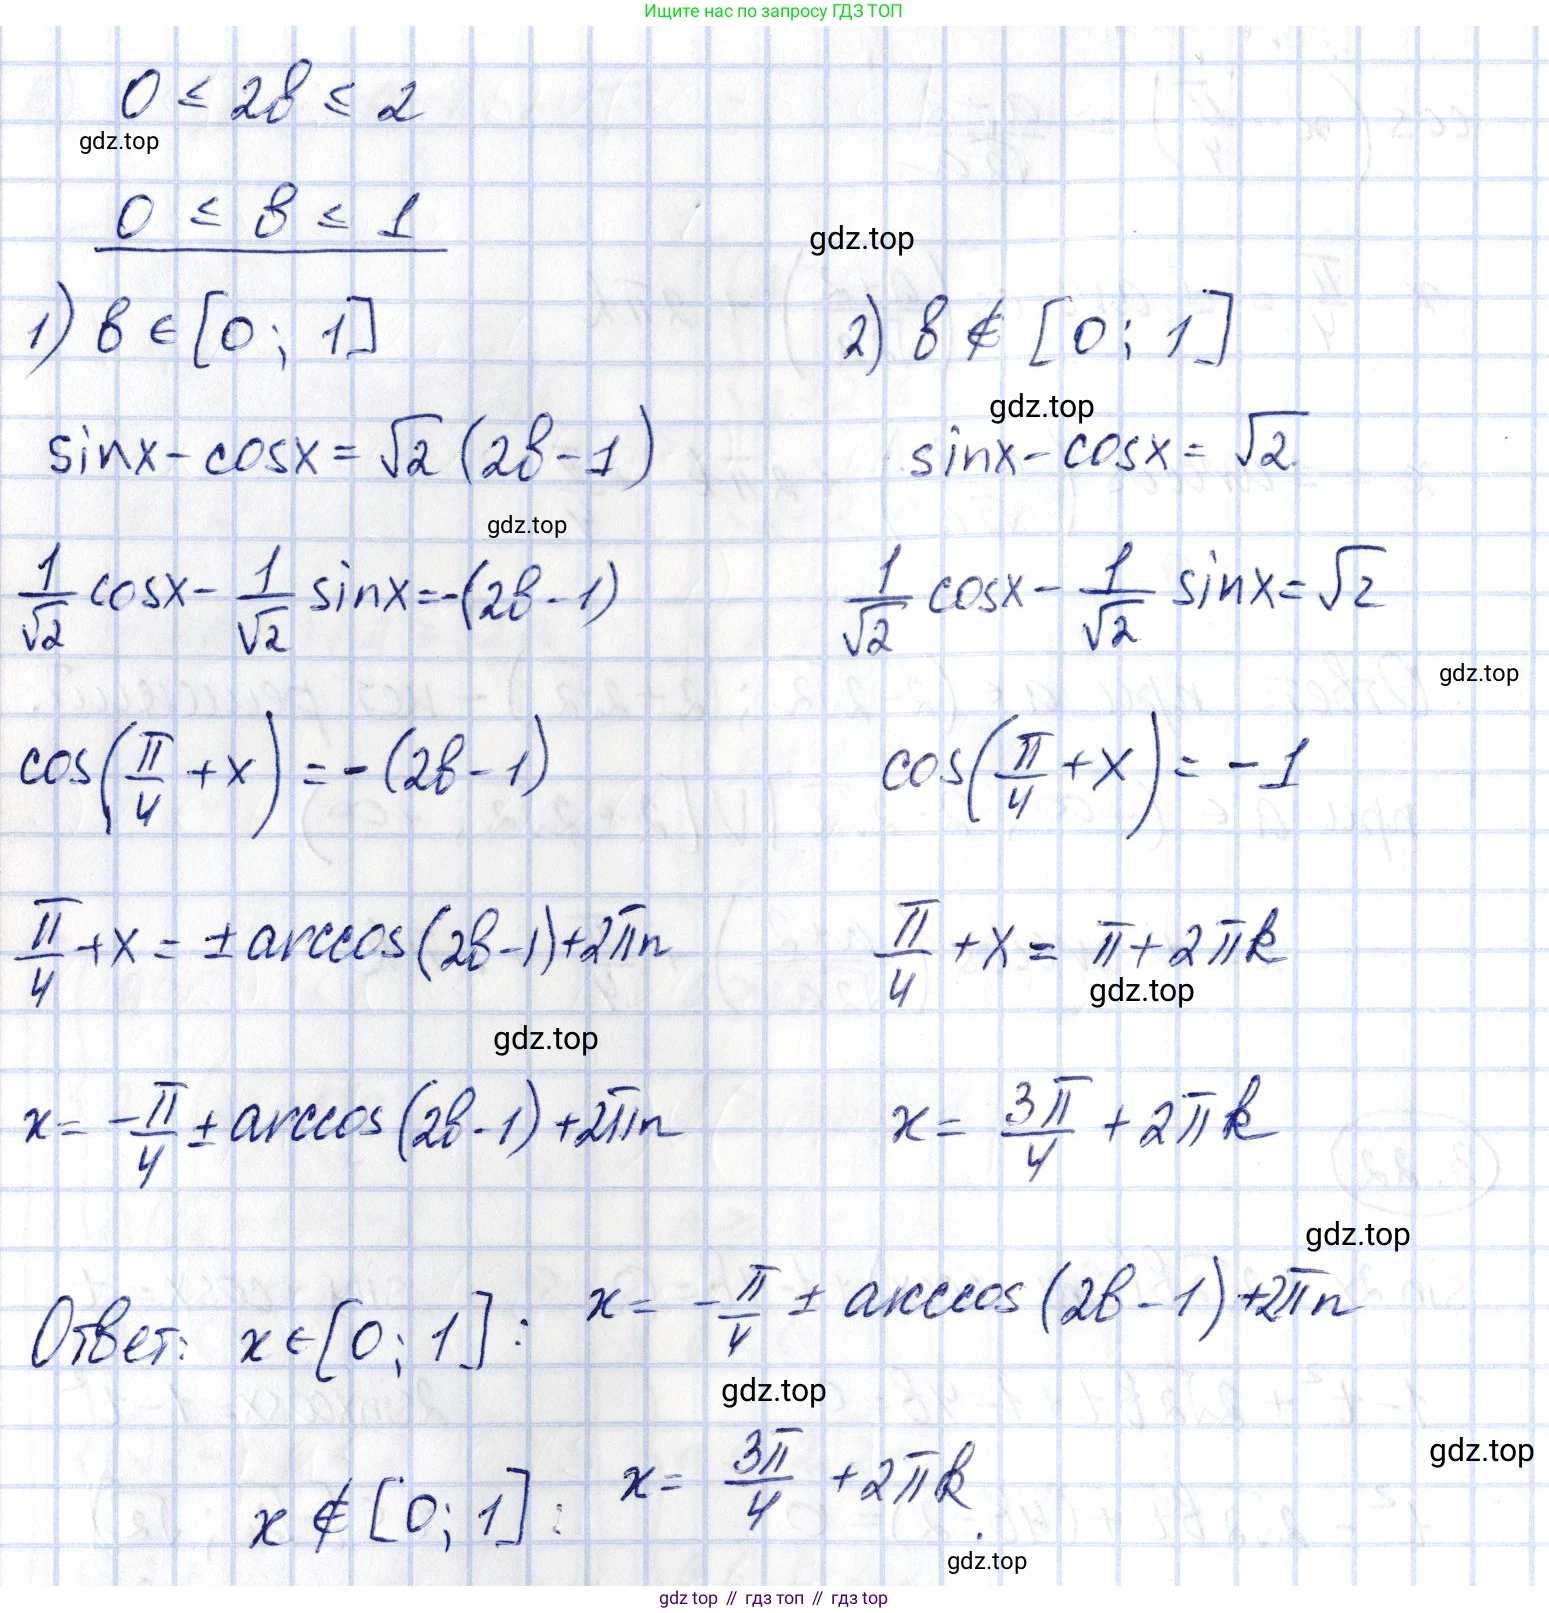 Ищите нас по запросу ГДЗ ТОП
0 ≤ 2в ≤ 2
gdz.top
0 ≤ в ≤ 1
gdz.top
1) в ∈ [0; 1]
2) в ∉ [0; 1]
gdz.top
sinx - cosx = √2 (2в - 1)
sinx - cosx = √2
gdz.top
1/√2 cosx - 1/√2 sinx = -(2в - 1)
1/√2 cosx - 1/√2 sinx = √2
gdz.top
cos(π/4 + x) = - (2в - 1)
cos(π/4 + x) = - 1
π/4 + x = ± arccos(2в - 1) + 2πn
π/4 + x = π + 2πk
gdz.top
gdz.top
x = -π/4 ± arccos(2в - 1) + 2πn
x = 3π/4 + 2πk
gdz.top
Ответ: x ∈ [0; 1]: x = - π/4 ± arccos (2в - 1) + 2πn
gdz.top
gdz.top
x ∉ [0; 1]: x = 3π/4 + 2πk.
gdz.top
gdz top // гдз топ // гдз top